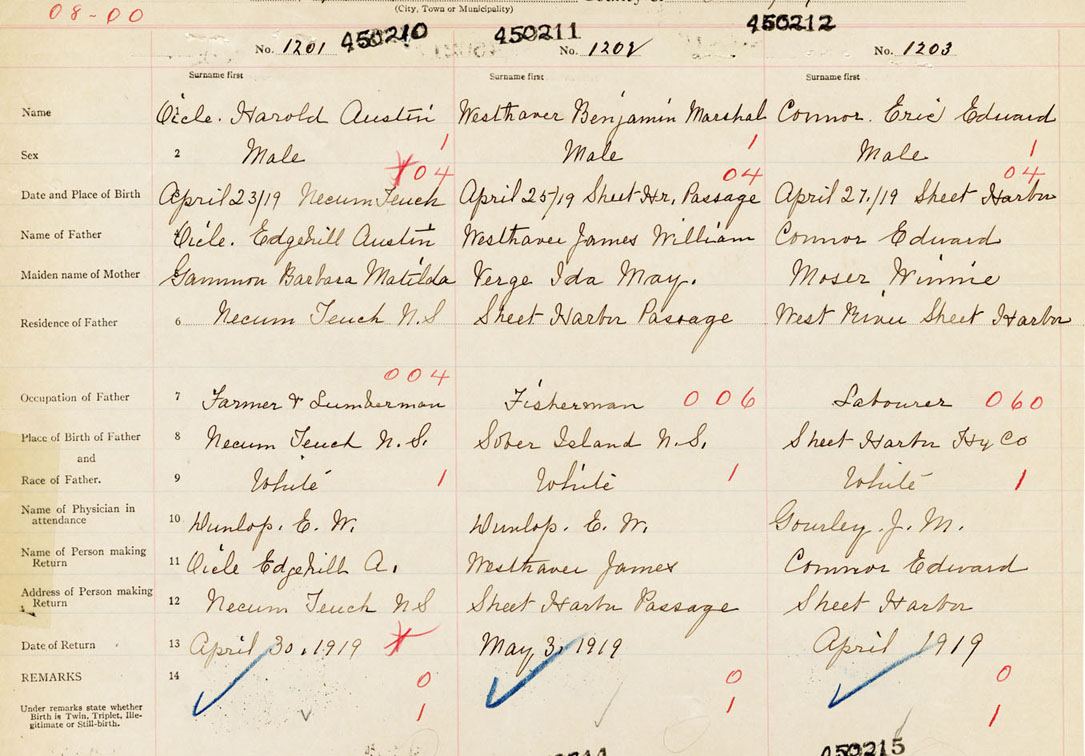 08-00
(City, Town or Municipality)
No. 1201 450210 450211 No. 1202 450212 No. 1203
Surname first Surname first Surname first
Name Oicle. Harold Austin Westhaver Benjamin Marshal Connor. Eric Edward
Sex 2 Male 1 Male 1 Male 1
04 04 04
Date and Place of Birth April 23/19 Necum Teuch April 25/19 Sheet Hr. Passage April 27./19 Sheet Harbor
Name of Father Oicle. Edgehill Austin Westhaver James William Connor Edward
Maiden name of Mother Gammon Barbara Matilda Verge Ida May. Moser Winnie
Residence of Father 6 Necum Teuch N.S Sheet Harbor Passage West River Sheet Harbor
004
Occupation of Father 7 Farmer & Lumberman Fisherman 006 Labourer 060
Place of Birth of Father 8 Necum Teuch N.S. Sober Island N.S. Sheet Harbor Hx Co
and
Race of Father. 9 White 1 White 1 White 1
Name of Physician in
attendance 10 Dunlop. E. W. Dunlop. E. W. Gourley. J. M.
Name of Person making
Return 11 Oicle Edgehill A. Westhaver James Connor Edward
Address of Person making
Return 12 Necum Teuch NS Sheet Harbor Passage Sheet Harbor
Date of Return 13 April 30, 1919 May 3, 1919 April 1919
REMARKS 14 0 0 0
Under remarks state whether
Birth is Twin, Triplet, Ille-
gitimate or Still-birth. 1 1 1
450215